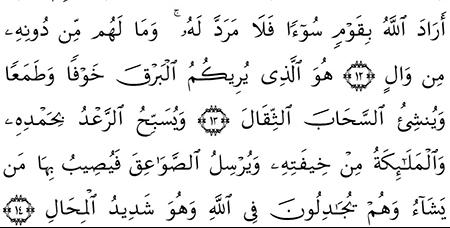 أَرَادَ ٱللَّهُ بِقَوْمٍ سُوٓءًا فَلَا مَرَدَّ لَهُۥ ۚ وَمَا لَهُم مِّن دُونِهِۦ
مِن وَالٍ ۝١٢ هُوَ ٱلَّذِى يُرِيكُمُ ٱلْبَرْقَ خَوْفًا وَطَمَعًا
وَيُنشِئُ ٱلسَّحَابَ ٱلثِّقَالَ ۝١٣ وَيُسَبِّحُ ٱلرَّعْدُ بِحَمْدِهِۦ
وَٱلْمَلَـٰٓئِكَةُ مِنْ خِيفَتِهِۦ وَيُرْسِلُ ٱلصَّوَٰعِقَ فَيُصِيبُ بِهَا مَن
يَشَآءُ وَهُمْ يُجَـٰدِلُونَ فِى ٱللَّهِ وَهُوَ شَدِيدُ ٱلْمِحَالِ ۝١٤